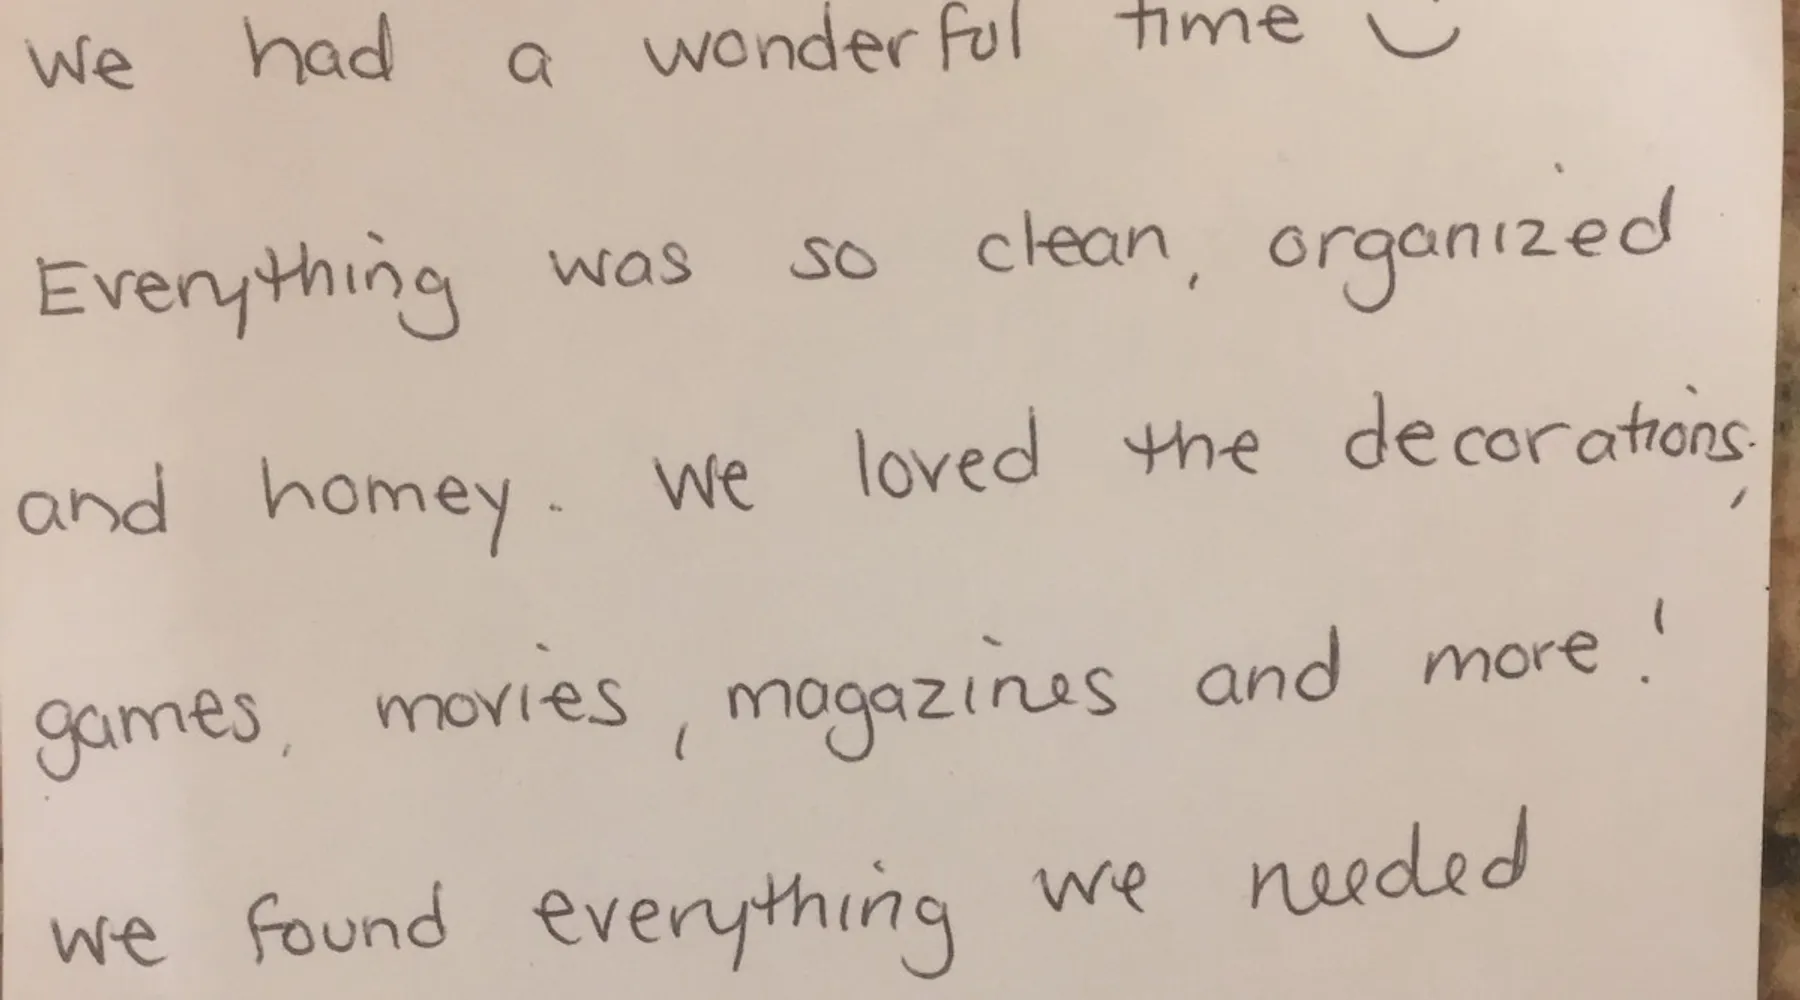 We had a wonderful time
Everything was so clean, organized
and homey. We loved the decorations,
games, movies, magazines and more!
we found everything we needed